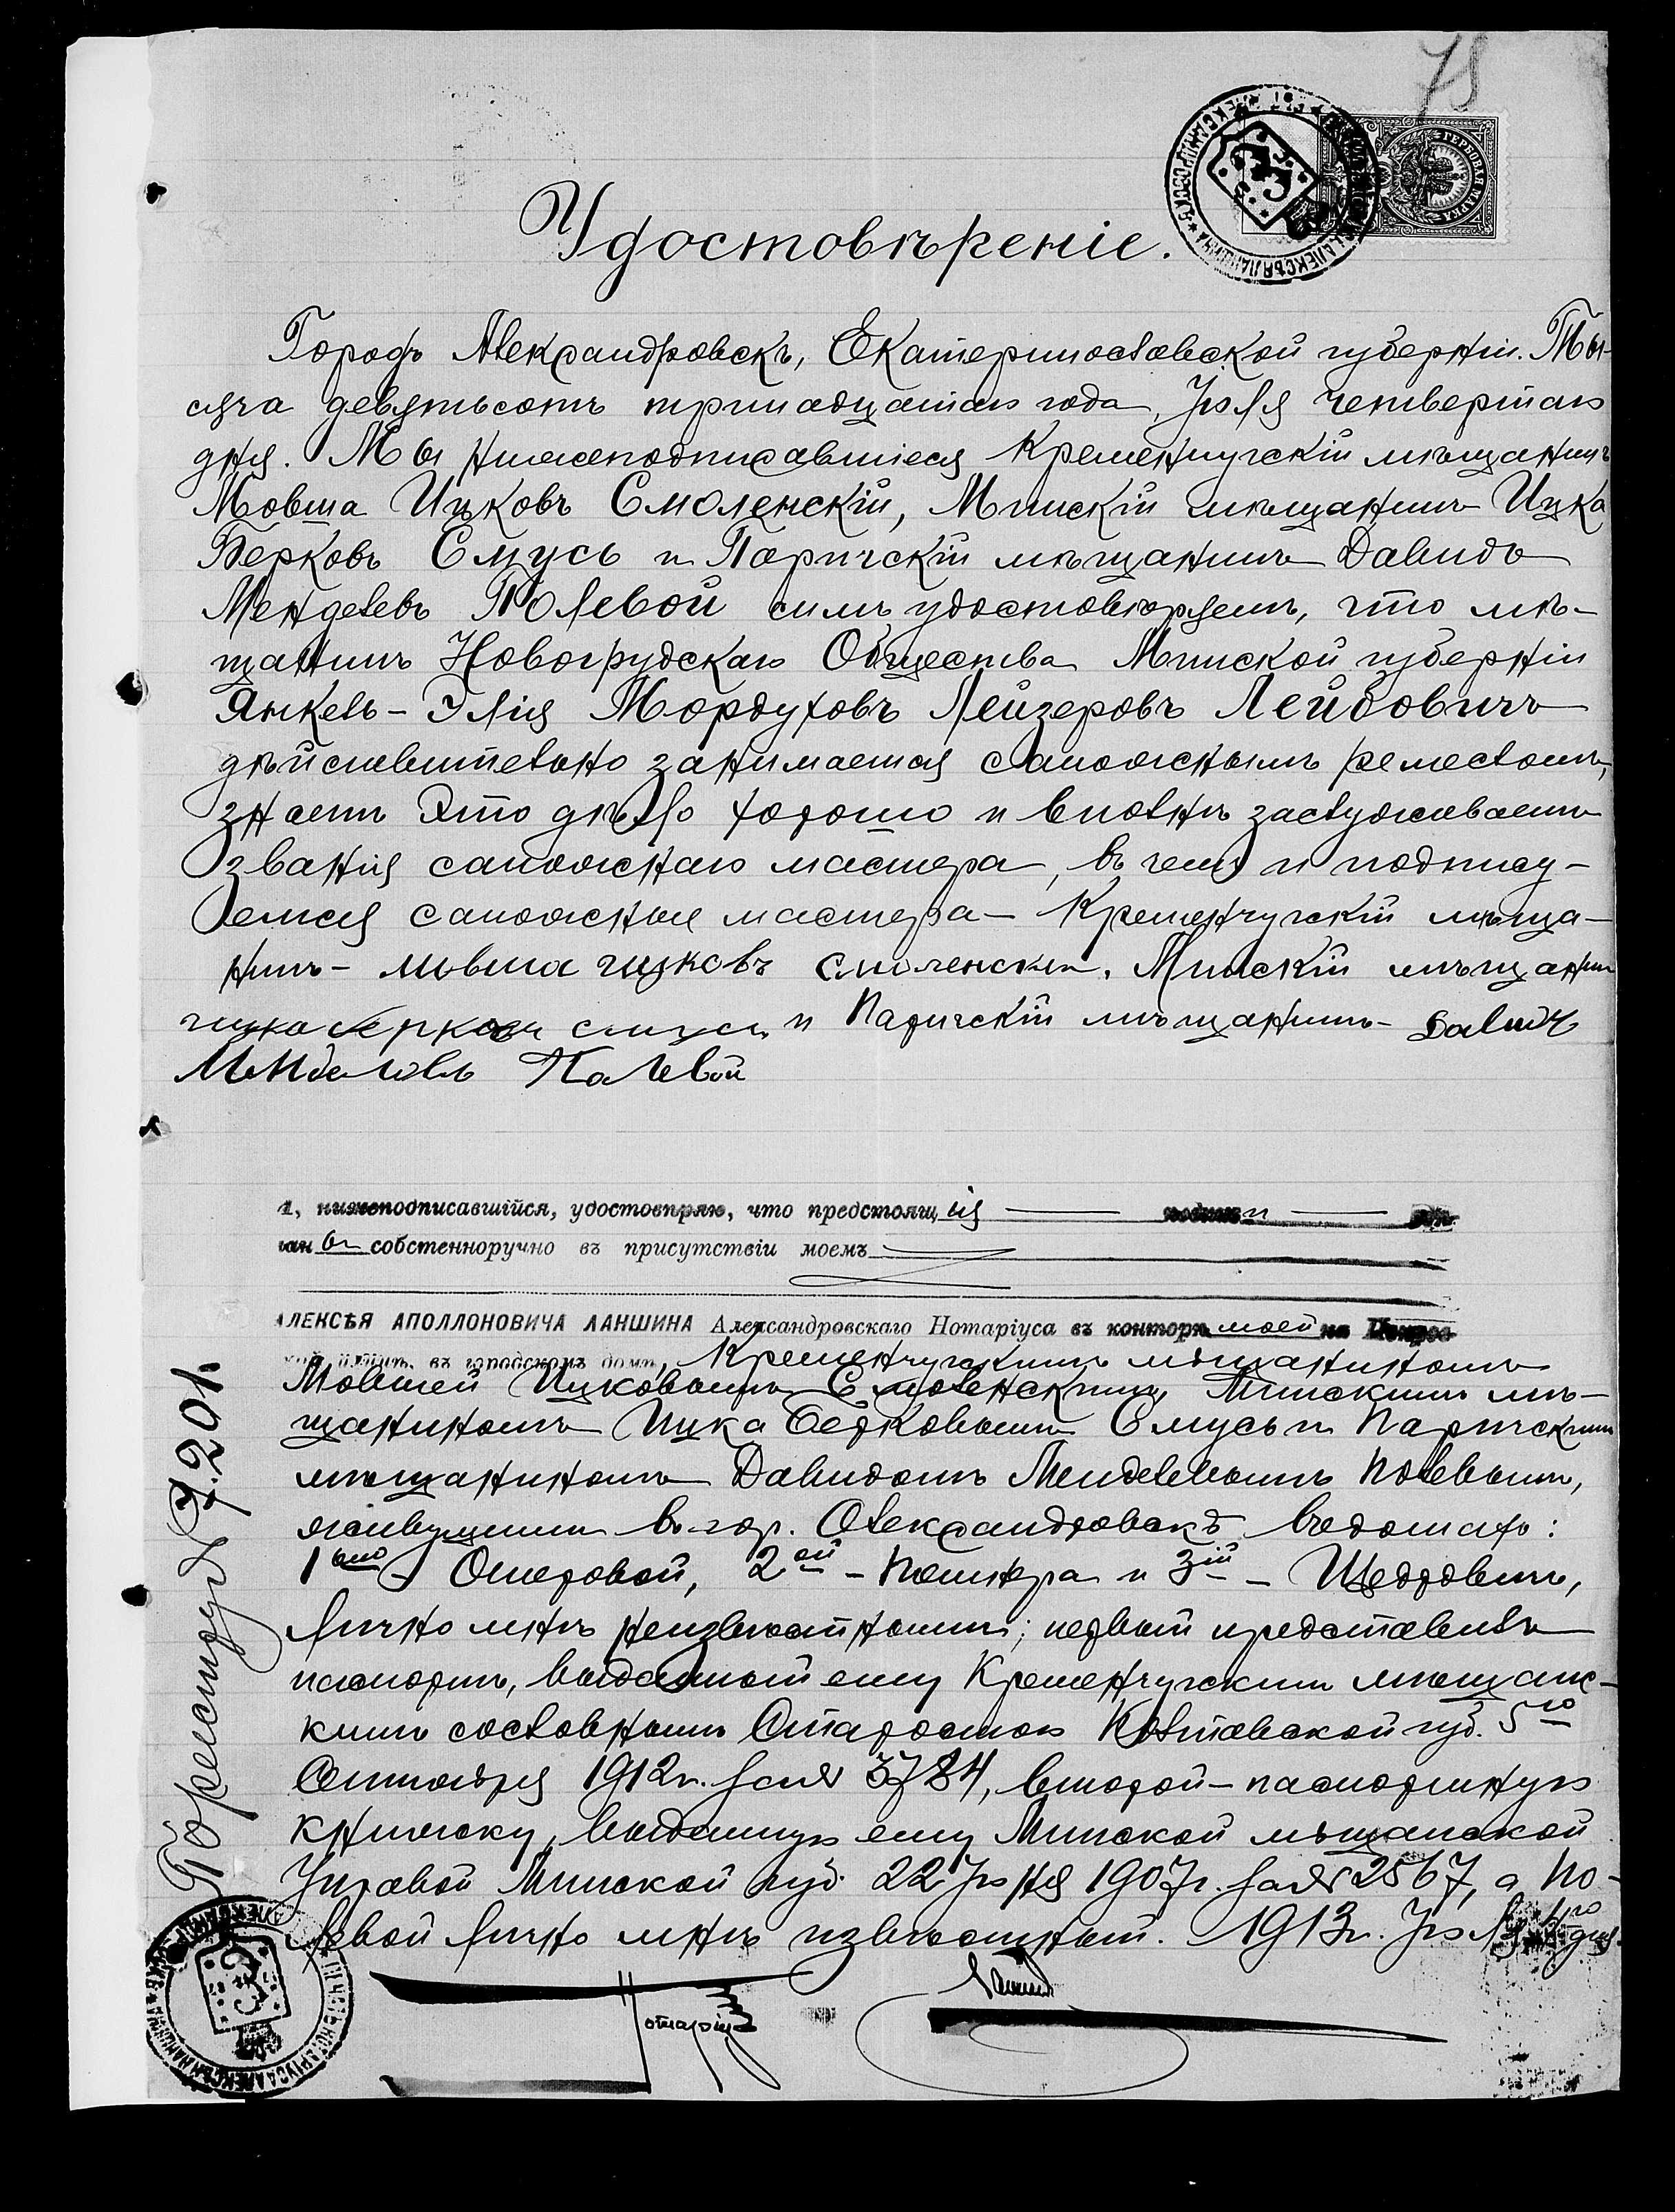 75
ГЕРБОВАЯ МАРКА
Удостовѣреніе.
Городъ Александровскъ, Екатеринославской губерніи. Ты-
сяча девятьсотъ тринадцатаго года, Іюля четвертаго
дня. Мы нижеподписавшіеся Кременчугскій мѣщанинъ
Мовша Ицковъ Смоленскій, Минскій мѣщанинъ Ицка
Берковъ Смусь и Паричскій мѣщанинъ Давидъ
Менделевъ Полевой симъ удостовѣряемъ, что мѣ-
щанинъ Новогрудскаго Общества Минской губерніи
Янкель-Элія Мордуховъ Лейзеровъ Лейбовичъ
дѣйствительно занимается сапожнымъ ремесломъ,
знаетъ это дѣло хорошо и вполнѣ заслуживаетъ
званія сапожнаго мастера, въ чемъ и подпису-
емся сапожные мастера – Кременчугскій мѣща-
нинъ – мовша ицковъ смоленски, Минскій мѣщанин
ицка берковъ смусь и Паричскій мѣщанинъ – Давидъ
Менделовъ Палевой
нижеподписавшійся, удостовѣряю, что предстоящія подписи
ы собственноручно въ присутствіи моемъ
АЛЕКСѢЯ АПОЛЛОНОВИЧА ЛАНШИНА Александровскаго Нотаріуса въ конторѣ моей на
въ городскомъ домѣ, Кременчугскимъ мѣщаниномъ
Мовшей Ицковымъ Смоленскимъ, Минскимъ мѣ-
щаниномъ Ицка Берковымъ Смусь и Паричскимъ
мѣщаниномъ Давидомъ Менделевымъ Полевымъ,
живущими въ гор. Александровскѣ въ домахъ:
1ый Ошеровой, 2ой – и 3ій –
лично мнѣ неизвѣстными; первый представилъ
паспортъ, выданный ему Кременчугскимъ мѣщанс-
кимъ сословнымъ Старостою Полтавской губ. 5го
Сентября 1912 г. за № 3784, второй – паспортную
книжку, выданную ему Минской мѣщанской
Управой Минской губ. 22 Іюня 1907 г. за № 2567, а По-
левой лично мнѣ извѣстный. 1913 г. Іюля 4го дня.
По реестру № 7.201.
Нотаріусъ